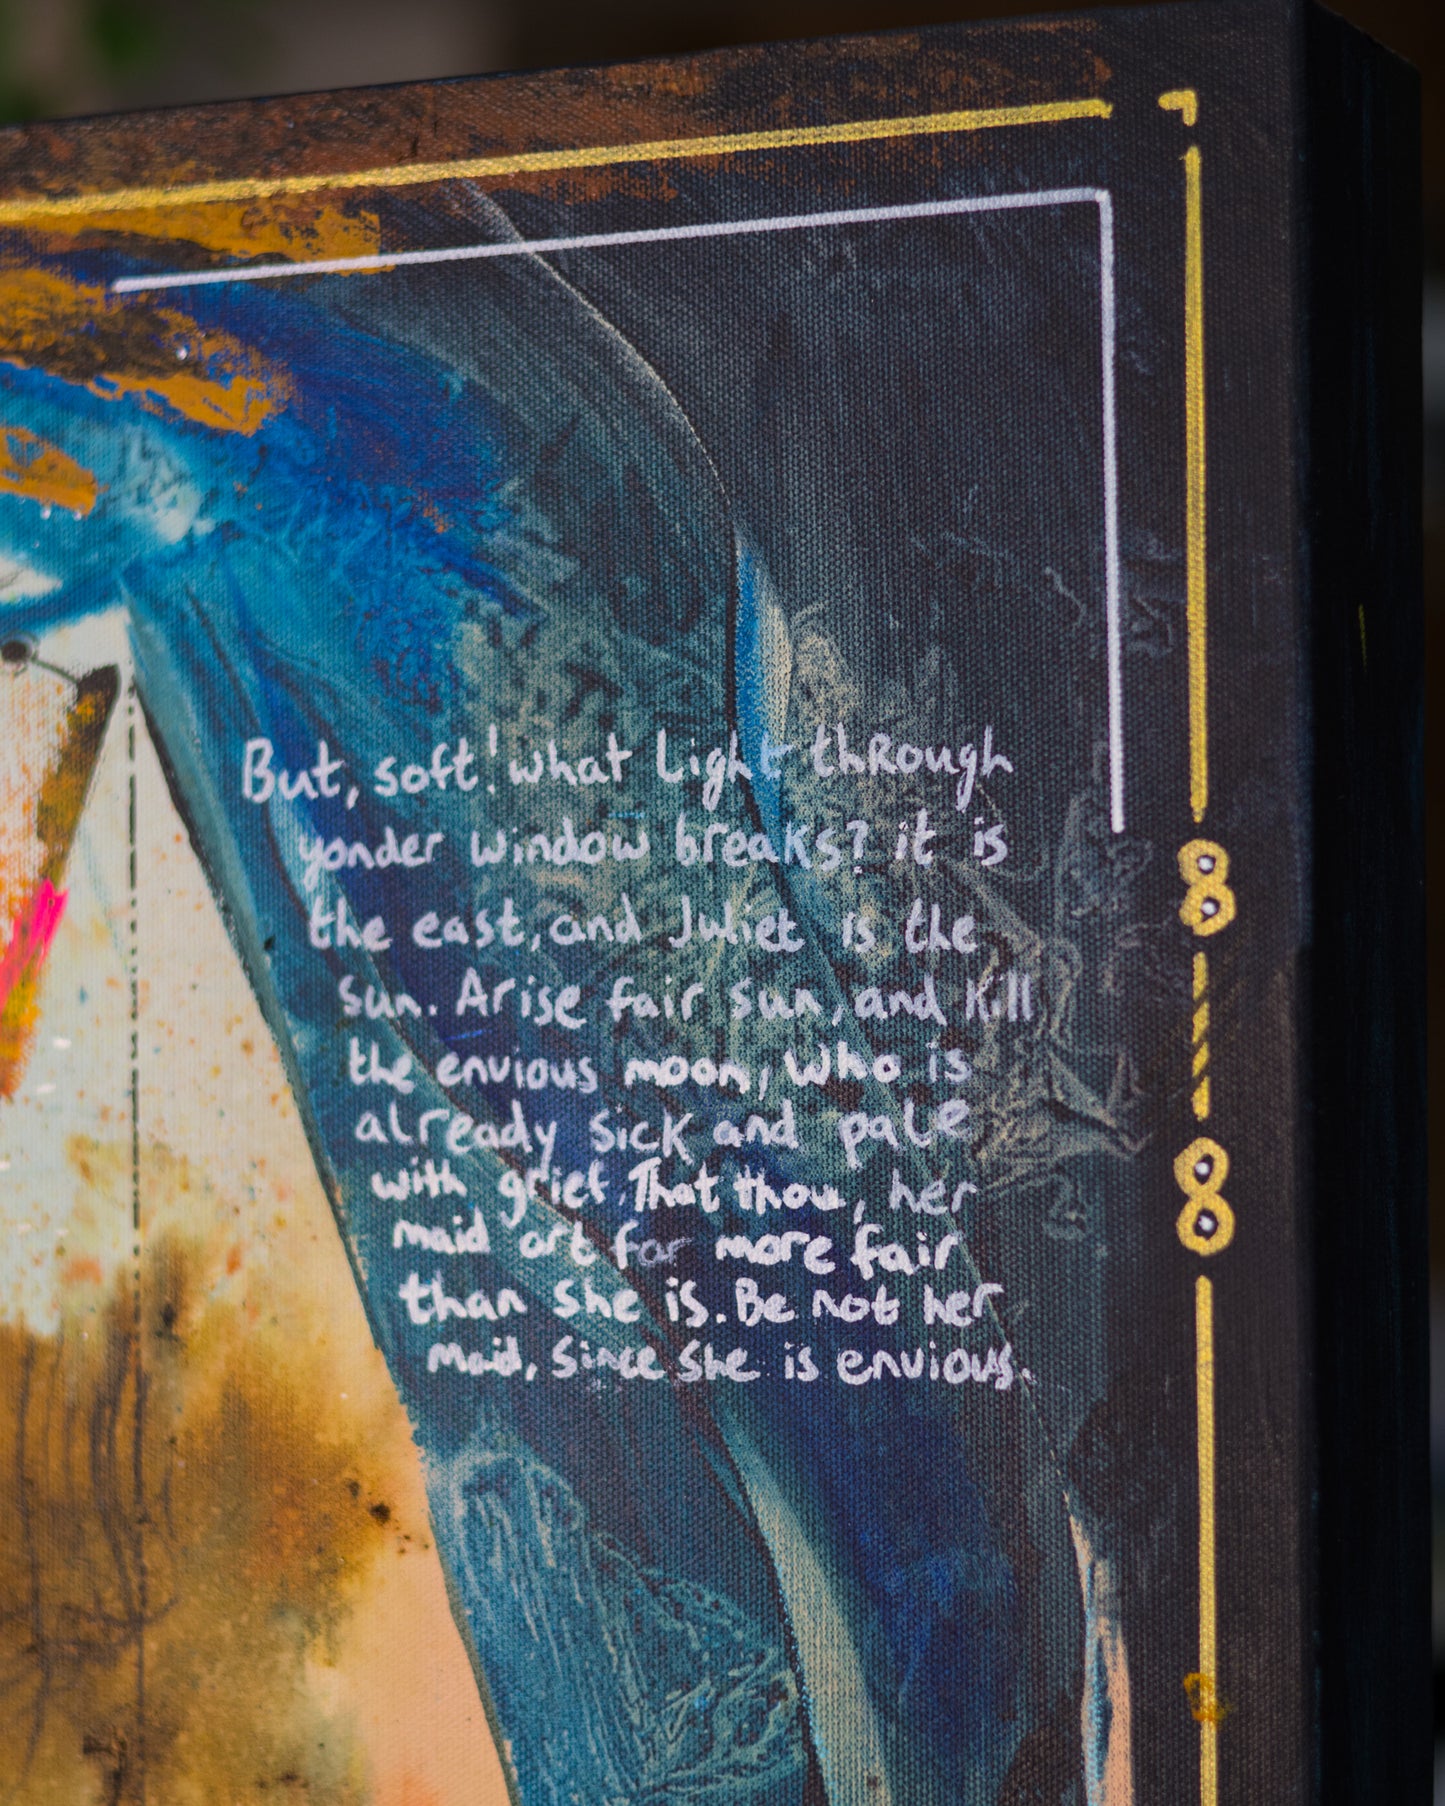 But, soft! what Light through
yonder window breaks? it is
the east, and Juliet is the
sun. Arise fair sun, and kill
the envious moon, Who is
already sick and pale
with grief, That thou, her
maid art far more fair
than she is. Be not her
maid, since she is envious.